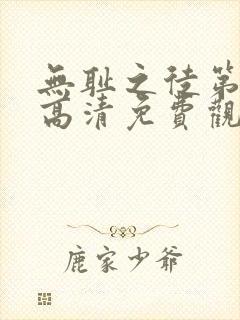 無耻之徒第
高清免費觀
鹿家少爺